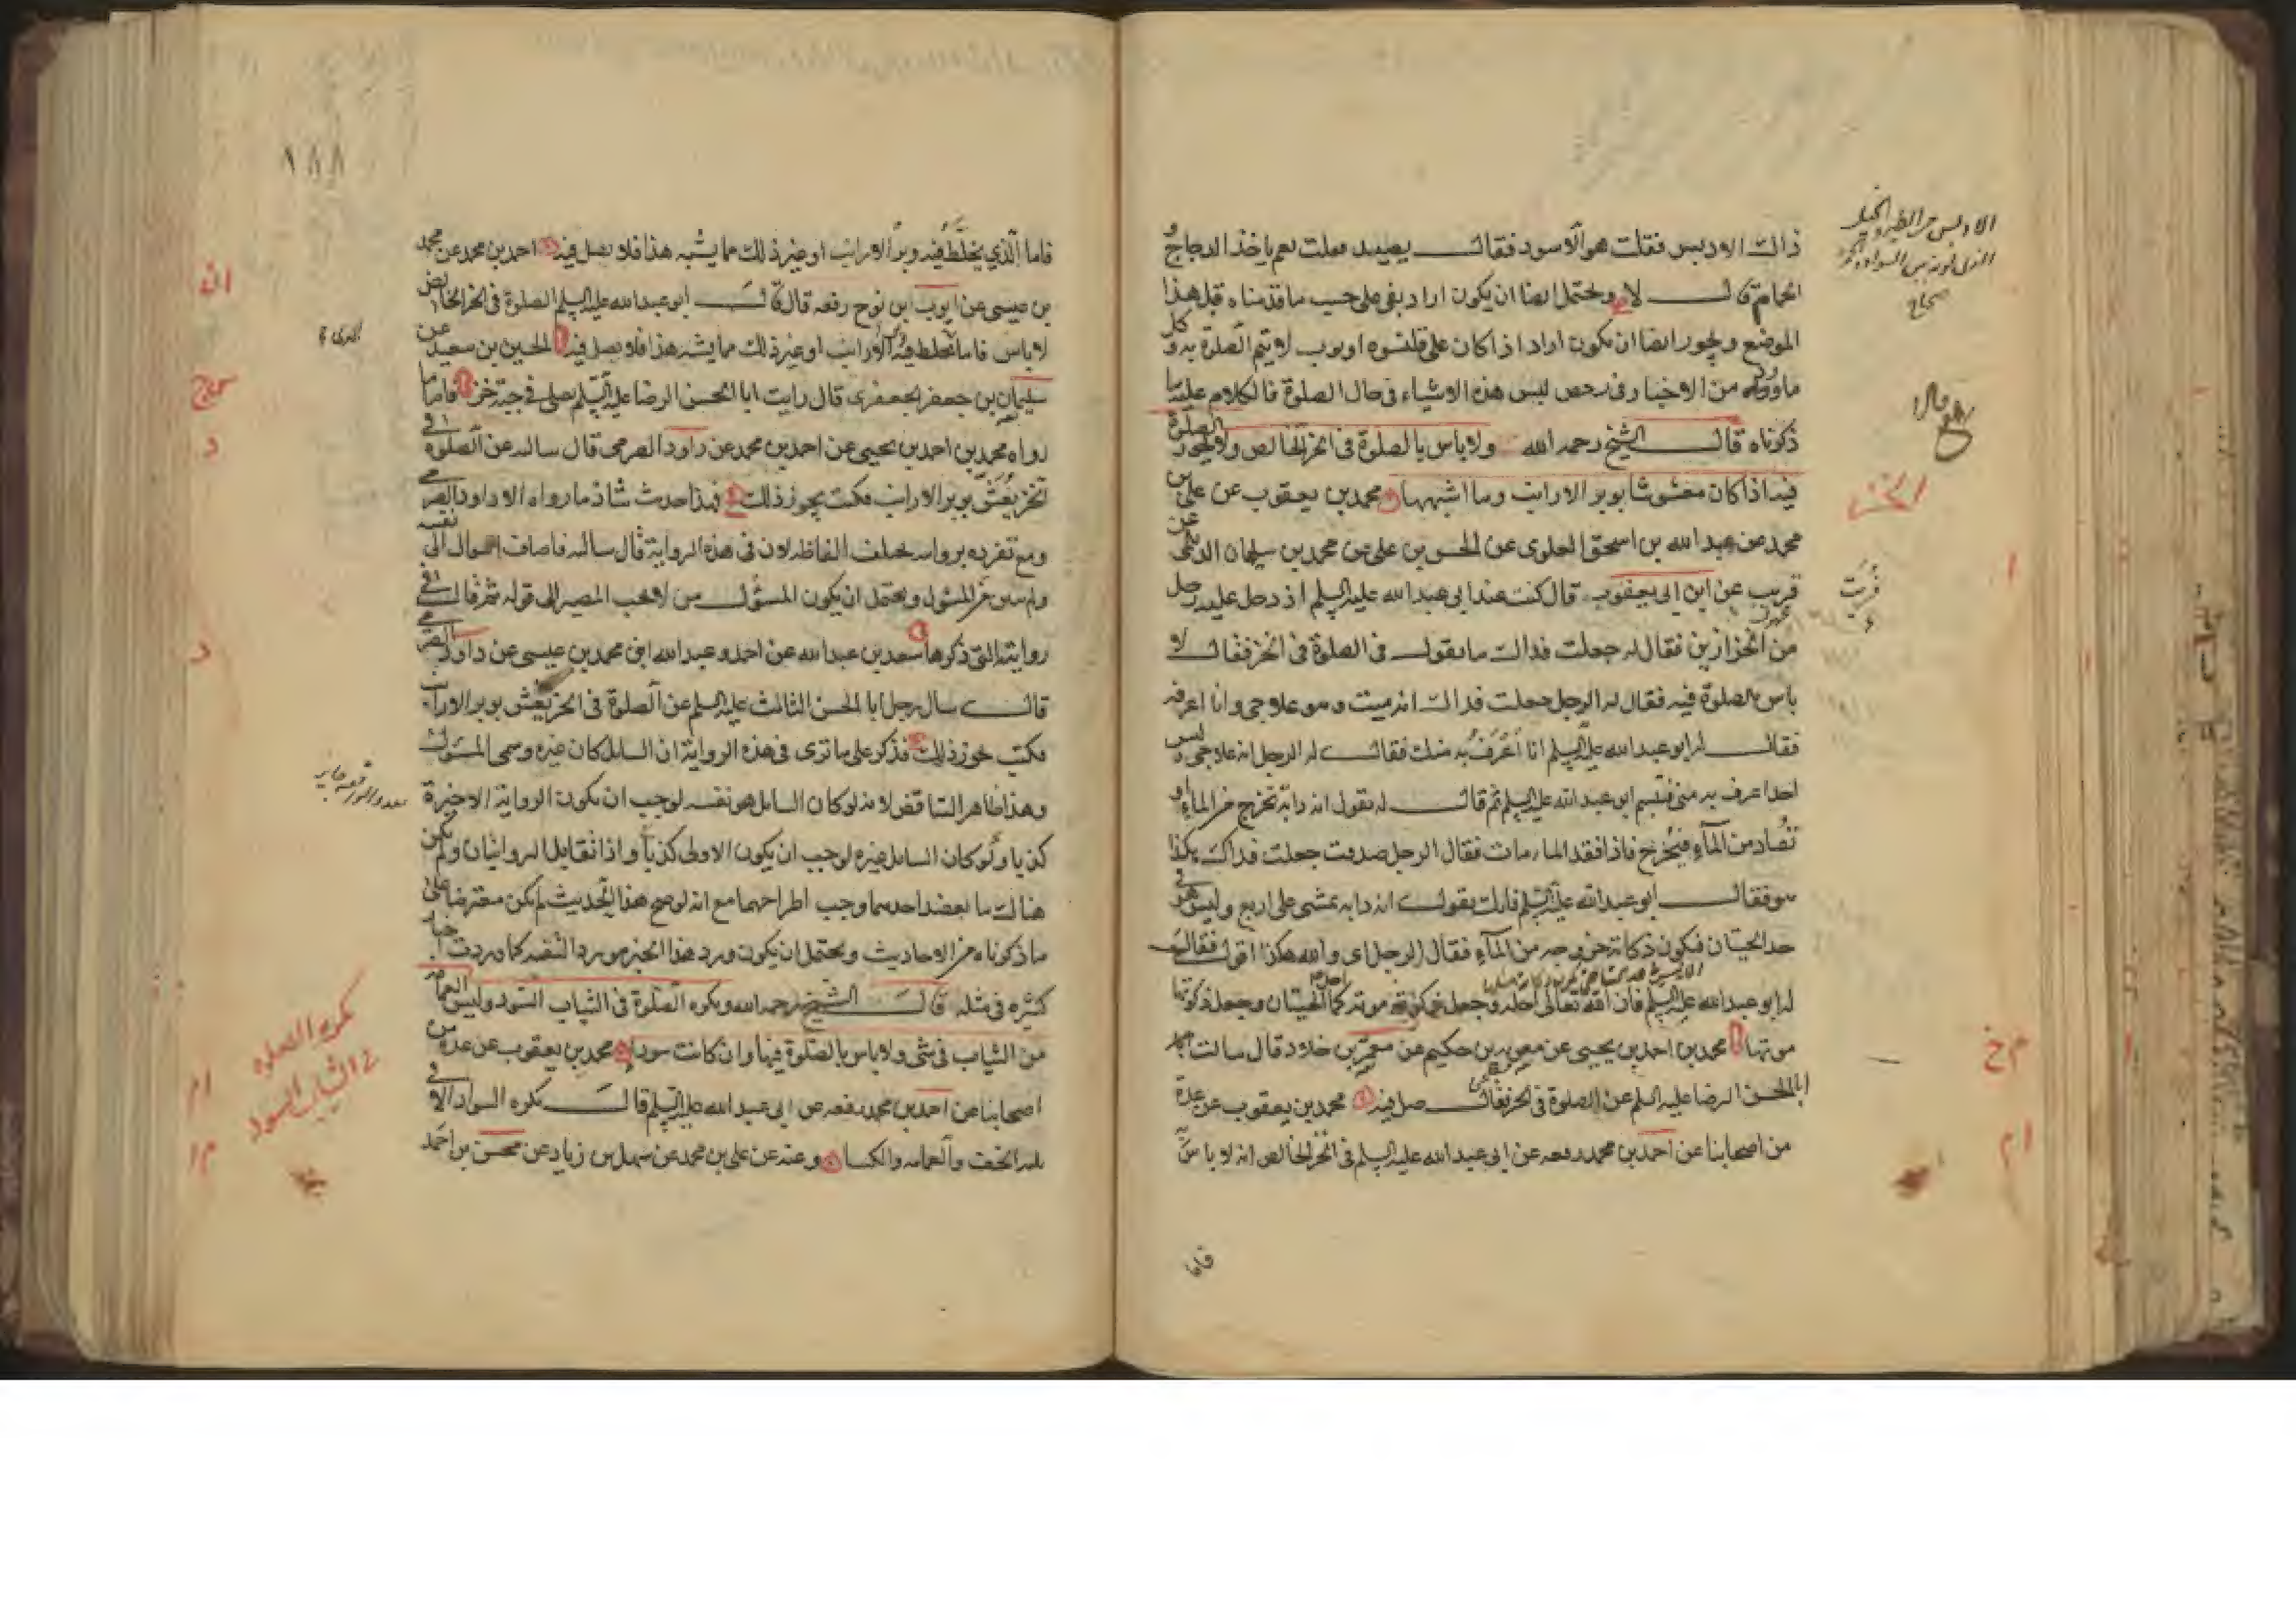 ذاك الادبس فقلت هو الاسود فقال يصيد فقلت نعم ياخذ الدجاج و
الحمام قال لا ويحتمل ايضا ان يكون اراد بقى على حسب ما قدمناه قبل هذا
الموضع ويجوز ايضا ان يكون اراد اذا كان على قلنسوه او ثوب لا يتم الصلوة به وكل
ما ورد من الاخبار فى رخص لبس هذه الاشياء فى حال الصلوة فالكلام عليه ما
ذكرناه قال الشيخ رحمه الله ولا باس بالصلوة فى الخز الخالص ولا يجوز الصلوة
فيه اذا كان مغشوشا بوبر الارانب وما اشبهها محمد بن يعقوب عن على بن
محمد عن عبد الله بن اسحق العلوى عن الحسن بن على عن محمد بن سليمان الديلمى عن
قريب عن ابن ابى يعفور قال كنت عند ابى عبد الله عليه السلم اذ دخل عليه رجل
من الخزازين فقال له جعلت فداك ما تقول فى الصلوة فى الخز فقال لا
باس بالصلوة فيه فقال له الرجل جعلت فداك انه ميت وهو علاجى وانا اعرفه
فقال له ابو عبد الله عليه السلم انا اعرف به منك فقال له الرجل انه علاجى وليس
احد اعرف به منى فتبسم ابو عبد الله عليه السلم ثم قال له تقول انه دابة تخرج من الماء او
تصاد من الماء فيخرج فاذا فقد الماء مات فقال الرجل صدقت جعلت فداك هكذا
هو فقال ابو عبد الله عليه السلم فانك تقول انه دابه تمشى على اربع وليس هو فى
حد الحيتان فيكون ذكاته خروجه من الماء فقال الرجل اى والله هكذا اقول فقال
له ابو عبد الله عليه السلم فان الله تعالى احله وجعل ذكوته موته كما احل الحيتان وجعل ذكوتها
موتها محمد بن احمد بن يحيى عن معوية بن حكيم عن معمر بن خلاد قال سالت
ابا الحسن الرضا عليه السلم عن الصلوة فى الخز فقال صل فيه محمد بن يعقوب عن عدة
من اصحابنا عن احمد بن محمد رفعه عن ابى عبد الله عليه السلم فى الخز الخالص انه لا باس
فاما
صحاح
١٨٨
فاما الذي يخلط فيه وبر الارانب او غير ذلك مما يشبه هذا فلا يصل فيه احمد بن محمد عن محمد
بن عيسى عن ايوب ابن نوح رفعه قال قال ابو عبد الله عليه السلم الصلوة فى الخز الخالص
لا باس فاما ما يخلط فيه وبر الارانب او غير ذلك مما يشبه هذا فلا يصل فيه الحسين بن سعيد عن
سليمان بن جعفر الجعفرى قال رايت ابا الحسن الرضا عليه السلم يصلى فى جبة خز فاما ما
رواه محمد بن احمد بن يحيى عن احمد بن محمد عن داود الصرمى قال سالته عن الصلوة فى
الخز يغش بوبر الارانب فكتب يجوز ذلك فهذا حديث شاذ ما رواه الا داود الصرمى
ومع تفرده بروايته يختلف الفاظه لان فى هذه الرواية قال سالته فاضاف السوال الى نفسه
ولم يبين من المسئول ويحتمل ان يكون المسؤل من لا يجب المصير الى قوله ثم قال فى
روايته التى ذكرها سعد بن عبد الله عن احمد وعبد الله ابنى محمد بن عيسى عن داود الصرمى
قال سال رجل ابا الحسن الثالث عليه السلم عن الصلوة فى الخز يغش بوبر الارانب
فكتب يجوز ذلك فذكر على ما ترى فى هذه الرواية ان السايل كان غيره وسمى المسؤل
وهذا ظاهر التناقض لانه لو كان السايل هو نفسه لوجب ان يكون الرواية الاخيرة
كذبا ولو كان السايل غيره لوجب ان يكون الاولى كذبا واذا تقابل الروايتان ولم يكن
هناك ما يعضد احدهما وجب اطراحهما مع انه لو صح هذا الحديث لم يكن معترضا على
ما ذكرناه من الاحاديث ويحتمل ان يكون ورد هذا الخبر مورد التقيه كما وردت اخبار
كثيره فى مثله قال الشيخ رحمه الله ويكره الصلوة فى الثياب السود وليس العمامه
من الثياب فى شى ولا باس بالصلوة فيها وان كانت سودا محمد بن يعقوب عن عدة من
اصحابنا عن احمد بن محمد رفعه عن ابى عبد الله عليه السلم قال يكره السواد الا فى
ثلثه الخف والعمامه والكسا وعنه عن على بن محمد عن سهل بن زياد عن محسن بن احمد
يكره الصلوه
فى الثياب السود